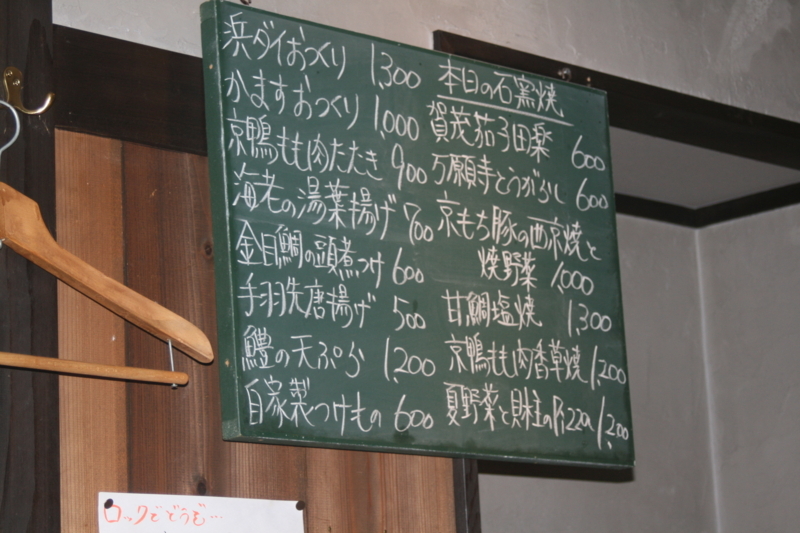 浜ダイおつくり 1,300
かますおつくり 1,000
京鴨もも肉たたき 900
海老の湯葉揚げ 700
金目鯛の頭煮つけ 600
手羽先唐揚げ 500
鱧の天ぷら 1,200
自家製つけもの 600
本日の石窯焼
賀茂茄子田楽 600
万願寺とうがらし 600
京もち豚の西京焼と
焼野菜 1,000
甘鯛塩焼 1,300
京鴨もも肉香草焼 1,200
夏野菜と 1,200
ロックでどうぞ…